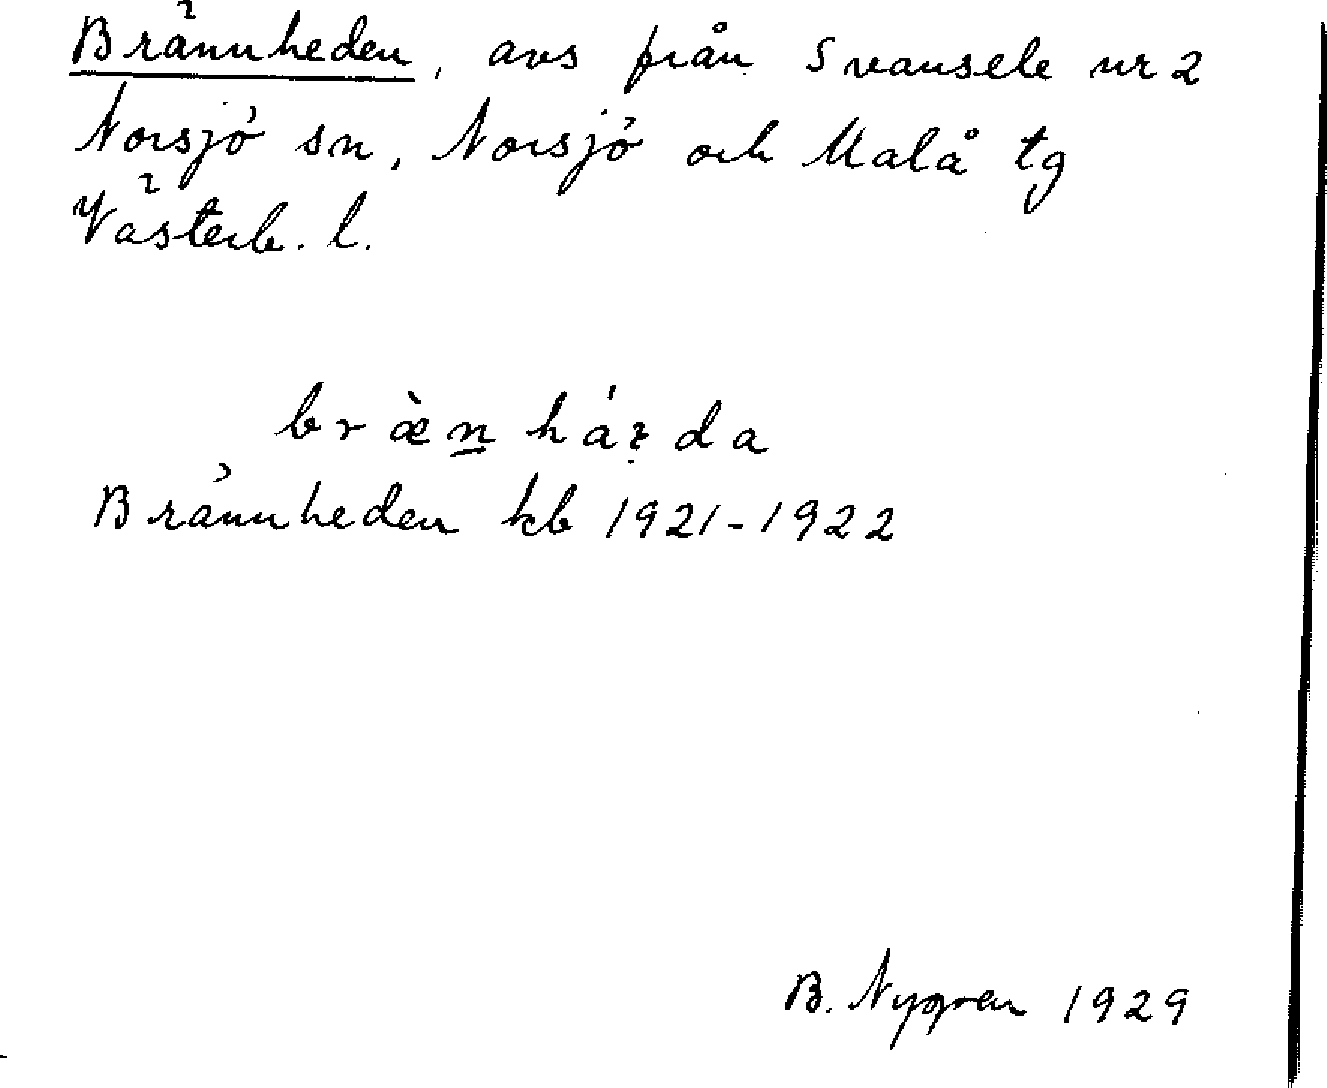 Brännheden, avs från Svansele nr 2
Norsjö sn, Norsjö och Malå tg
Västerb. l.
Brännheden kb 1921-1922
B. Nygren 1929